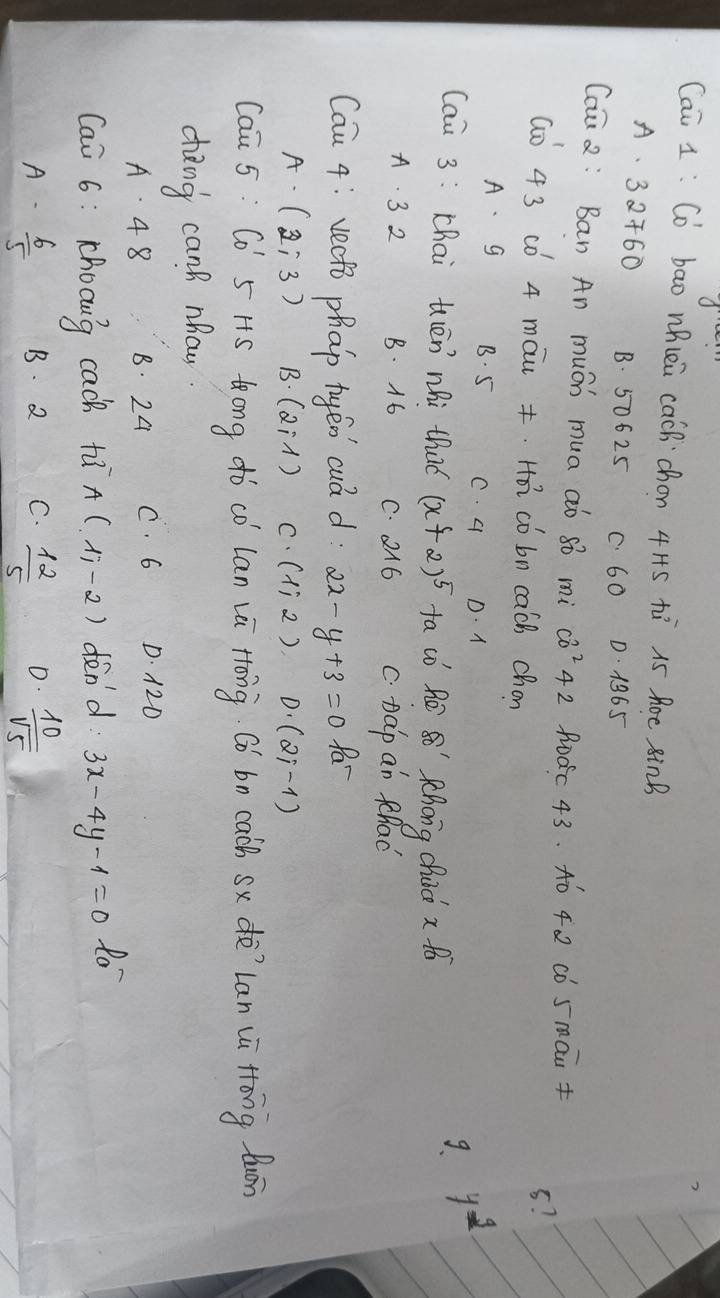 Câu 1 : Có bao nhiêu cách chọn 4 HS từ 15 học sinh
A. 32760 B. 50625 C. 60 D. 1365
Câu 2 : Bạn An muốn mua áo sơ mi cỡ 42 hoặc 43. Áo 42 có 5 màu ≠
Cỡ 43 có 4 màu ≠. Hỏi có bn cách chọn
A. 9 B. 5 C. 4 D. 1
Câu 3 : Khai triển nhị thức (x+2)⁵ ta có hệ số không chứa x là
A. 32 B. 16 C. 216 C. Đáp án khác
Câu 4 : Vectơ pháp tuyến của d : 2x - y + 3 = 0 là
A. (2; 3) B. (2; 1) C. (1; 2) D. (2; -1)
Câu 5 : Có 5 HS trong đó có Lan và Hồng. Có bn cách sx để Lan và Hồng luôn
đứng cạnh nhau.
A. 48 B. 24 C. 6 D. 120
Câu 6 : Khoảng cách từ A (1; -2) đến d : 3x - 4y - 1 = 0 là
A. 6/5 B. 2 C. 12/5 D. 10/√5
5!
9. y